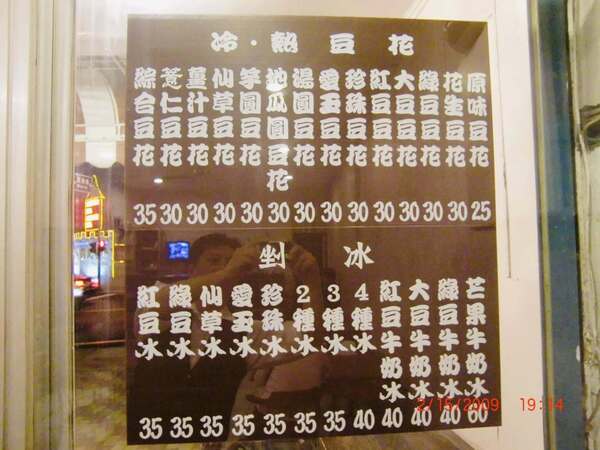 冷·熱豆花
原味豆花 25
花生豆花 30
綠豆豆花 30
大豆豆花 30
紅豆豆花 30
珍珠豆花 30
愛玉豆花 30
湯圓豆花 30
地瓜圓豆花 30
芋圓豆花 30
仙草豆花 30
薑汁豆花 30
薏仁豆花 30
綜合豆花 35
剉冰
芒果牛奶冰 60
綠豆牛奶冰 40
大豆牛奶冰 40
紅豆牛奶冰 40
4種冰 40
3種冰 35
2種冰 35
珍珠冰 35
愛玉冰 35
仙草冰 35
綠豆冰 35
紅豆冰 35
2/15/2009 19:14